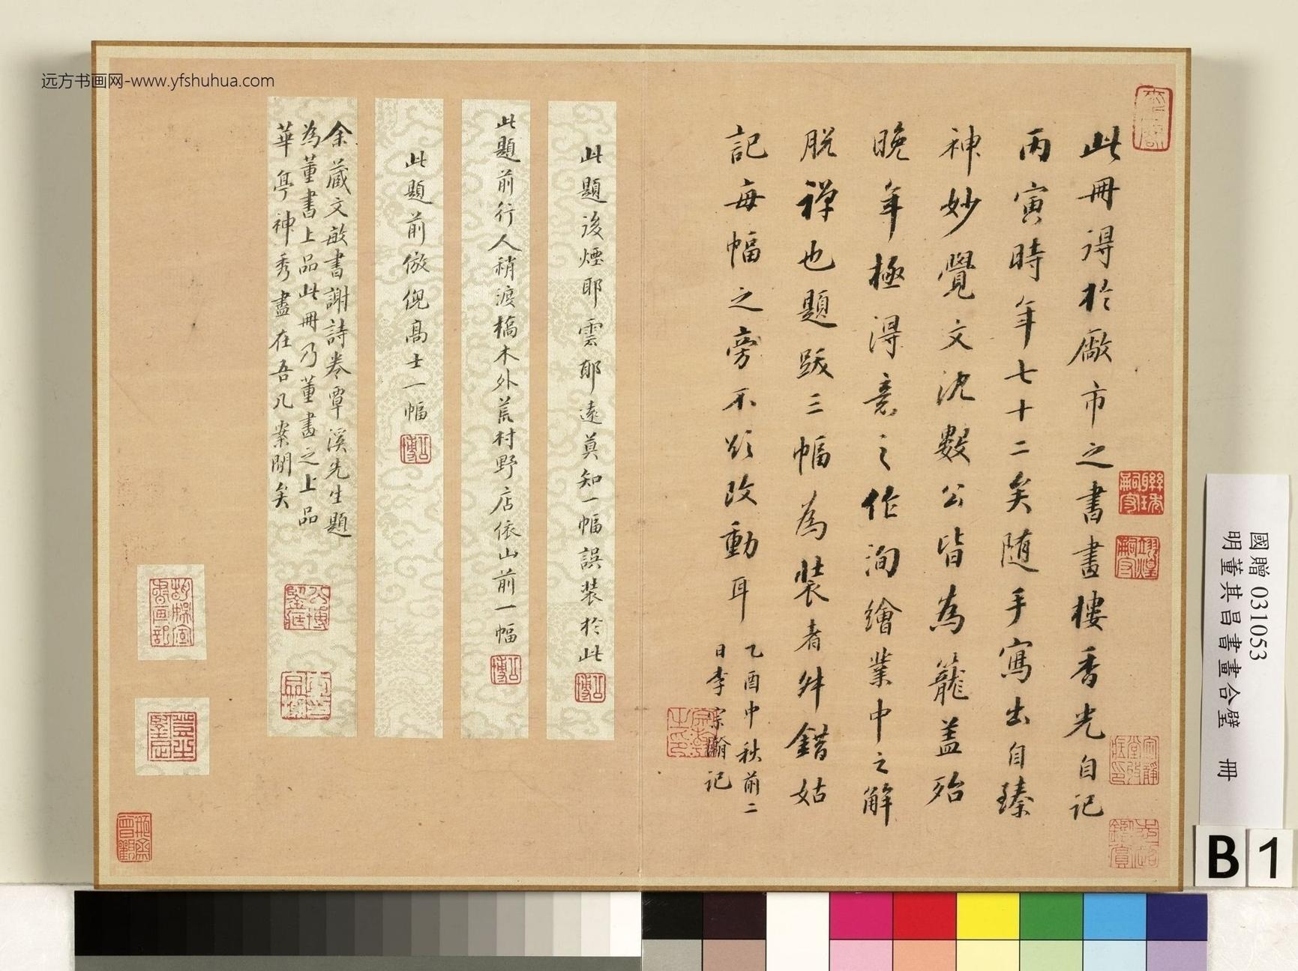 远方书画网-www.yfshuhua.com
此冊得於廠市之書畫樓香光自記
丙寅時年七十二矣随手寫出自臻
神妙覺文沈數公皆為籠盖殆
晚年極得意之作洵繪業中之解
脱禅也題跋三幅為装者舛錯姑
記每幅之旁不欲改動耳
乙酉中秋前二
日李宗瀚記
此題後煙耶雲耶遠莫知一幅誤装於此
此題前行人稍渡橋木外荒村野店依山前一幅
此題前倣倪高士一幅
余藏文敏書謝詩卷覃溪先生題
為董書上品此冊乃董畫之上品
華亭神秀盡在吾几案間矣
公博
公博
公博
國贈 031053
明董其昌書畫合璧 冊
B 1